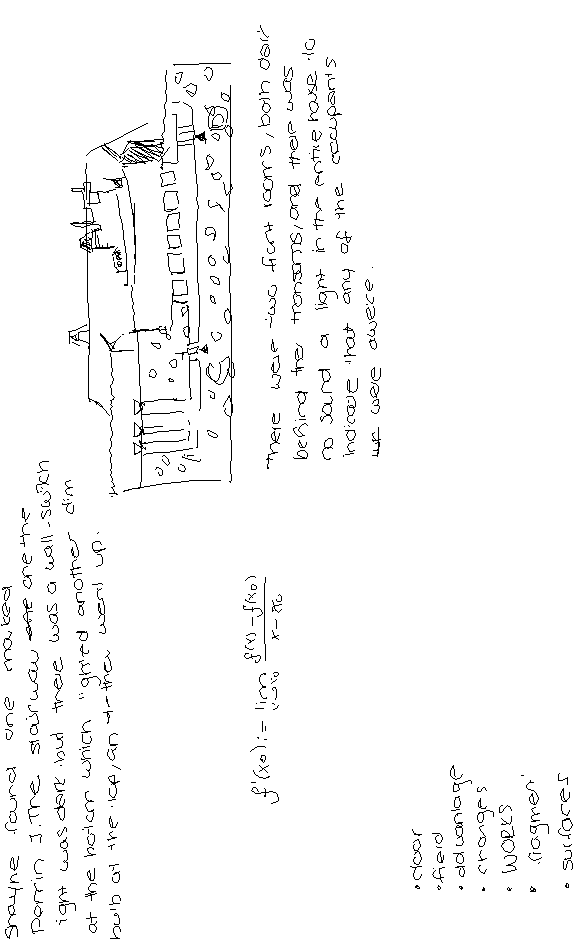 Shayne found one marked
Perrin J. The stairway one the
ight was dark but there was a wall-switch
at the bottom which ignited another dim
bulb at the top, an they went up.
There were two front rooms, both dark
behind their transoms, and there was
no sound a light in the entire house to
indicate that any of the occupants
were awake.
f'(x₀) := lim x→x₀ (f(x) - f(x₀))/(x - x₀)
• door
• field
• advantage
• changes
• WORKS
• fragment
• surfaces